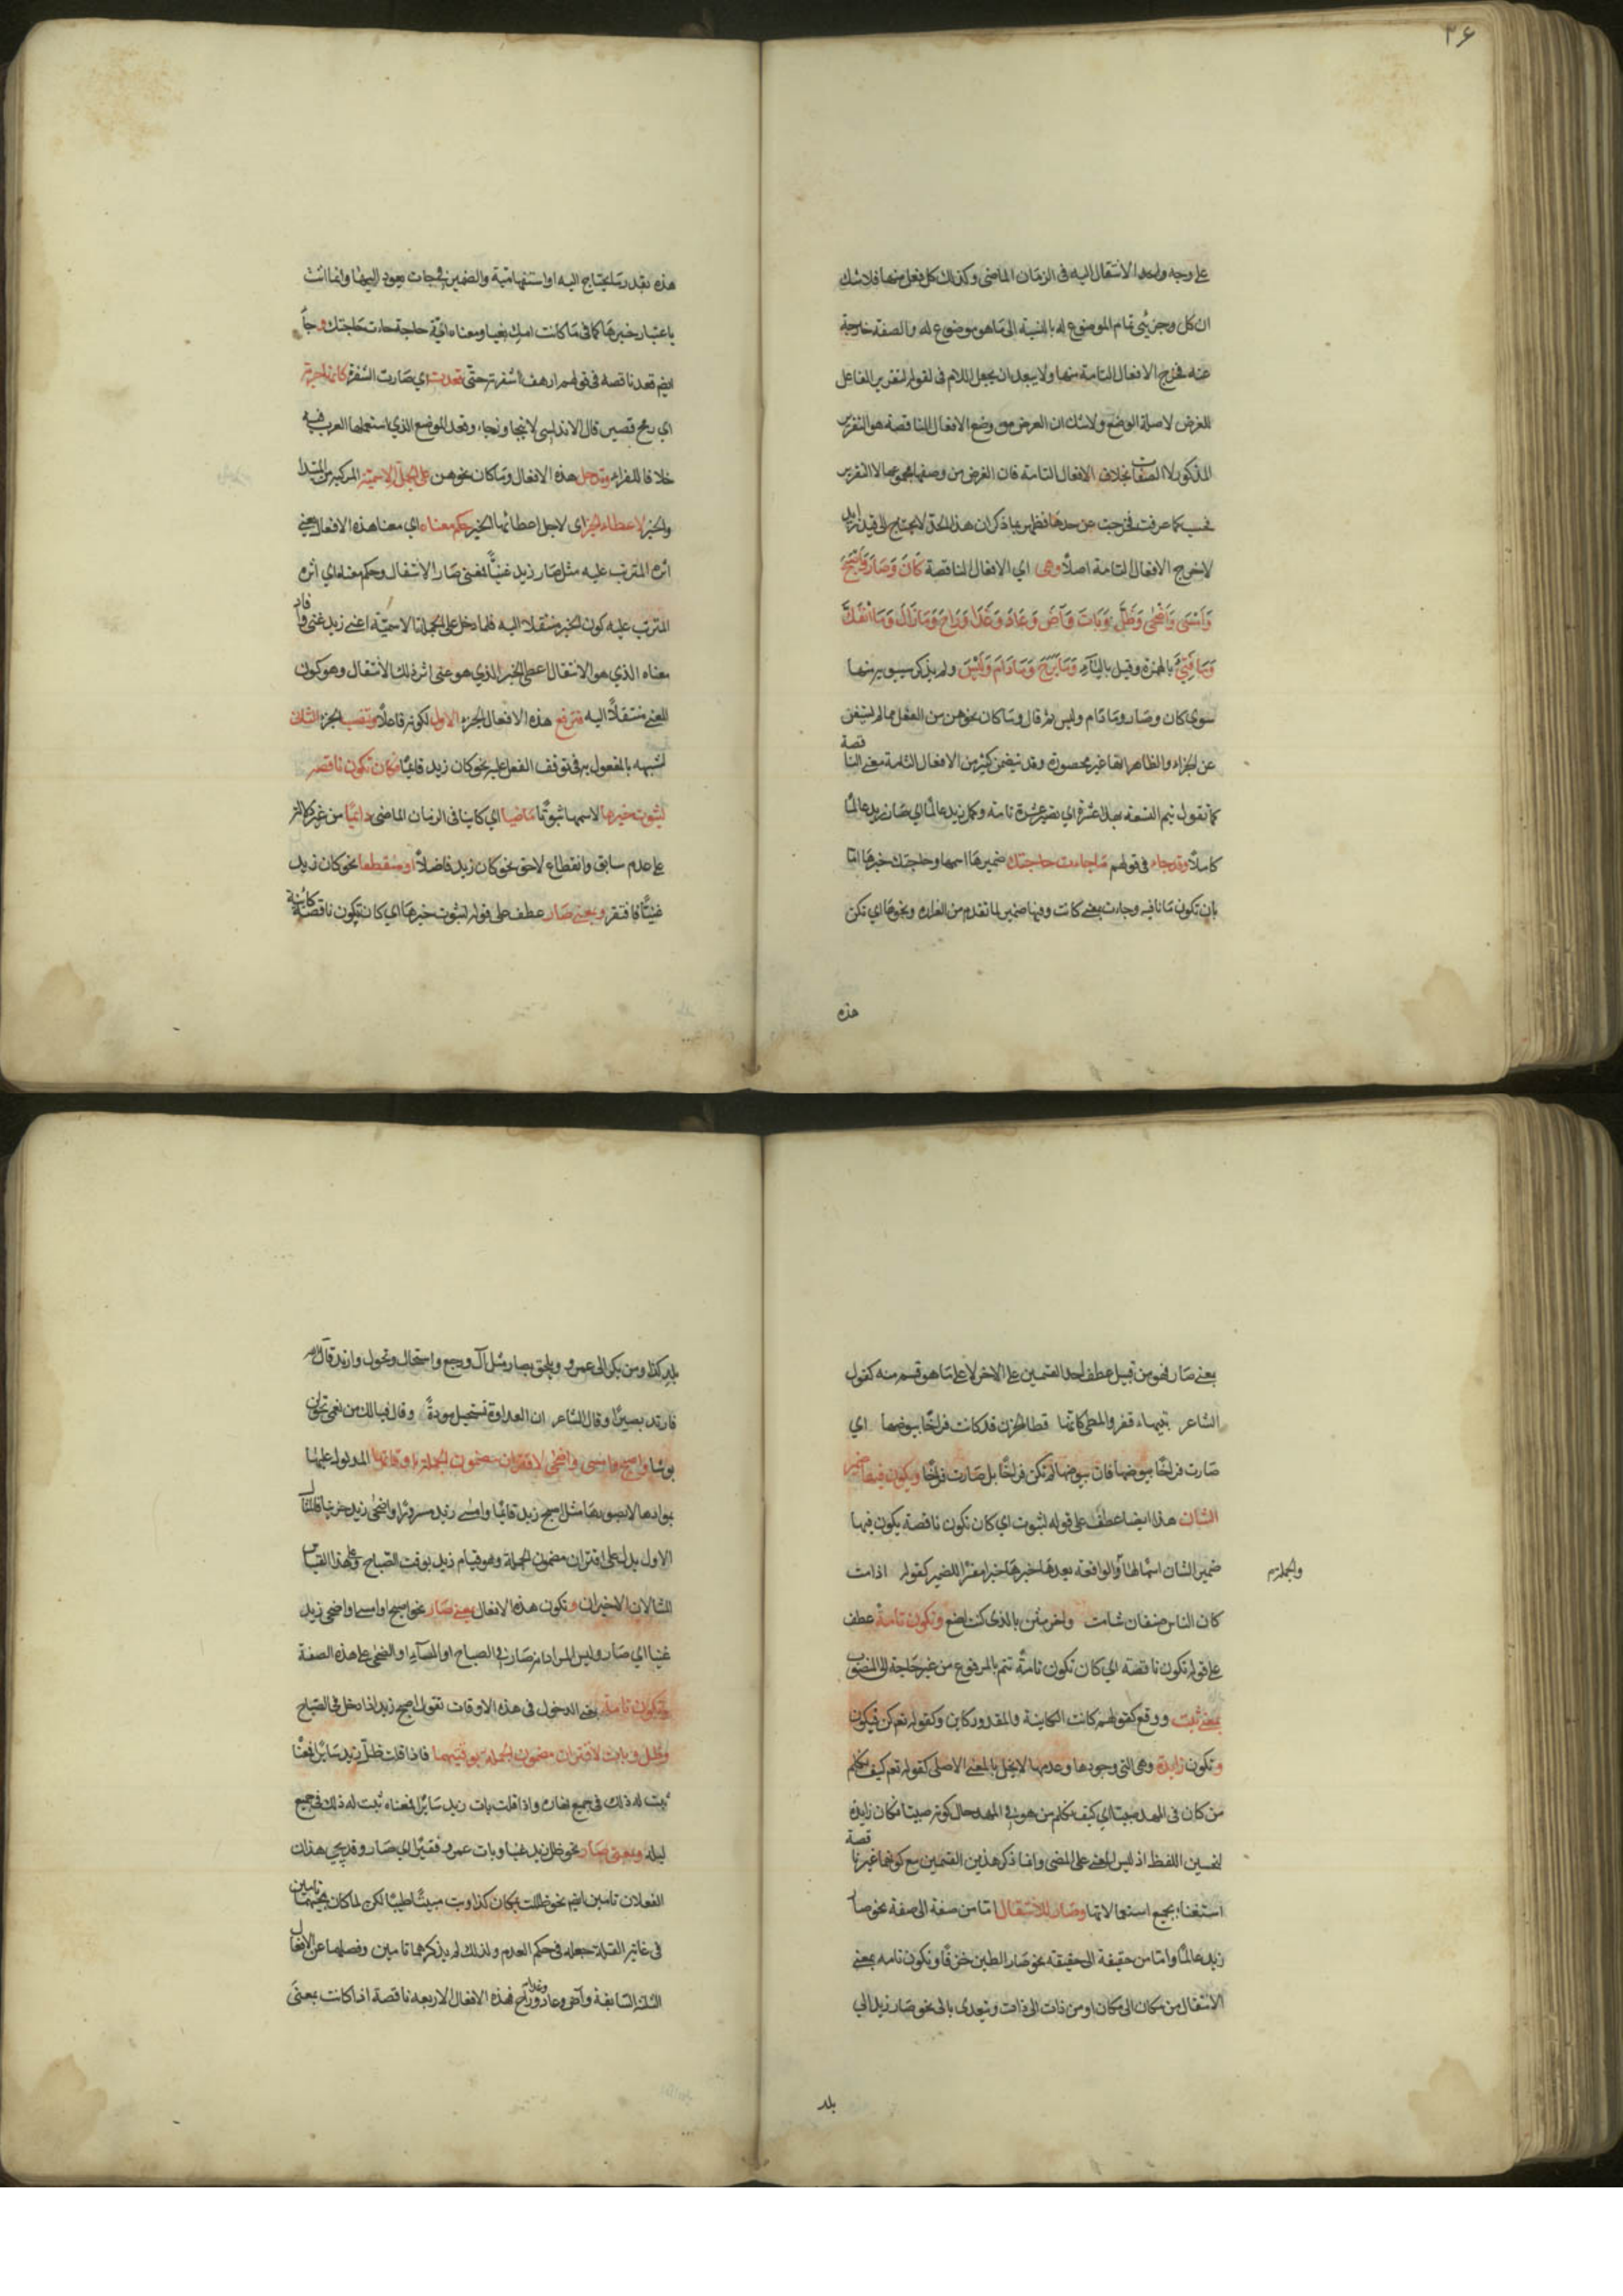 ٣۶
على وجه واحد الانتقال اليه فى الزمان الماضى وكذلك كل فعل منها فلا شك
ان كل وجزئى تمام الموضوع له بالنسبة الى ما هو موضوع له والصفة خارجة
عنه فخرج الافعال التامة منها ولا يبعد ان يجعل اللام فى لقوله لتقرير الفاعل
للغرض لا صلة الوضع ولا شك ان الغرض من وضع الافعال الناقصة هو التقرير
المذكور لا الصفات بخلاف الافعال التامة فان الغرض من وضعها مجموعها لا التقرير
فحسب كما عرفت فخرجت عن حدها فظهر بما ذكر ان هذا الحد لا يحتاج الى قيد زايد
لاخرج الافعال التامة اصلا وهى اي الافعال الناقصة كَانَ وَصَارَ وَاَصْبَحَ
وَاَمْسَى وَاَضْحٰى وَظَلَّ وَبَاتَ وَآضَ وَعَادَ وَغَدَا وَرَاحَ وَمَا زَالَ وَمَا انْفَكَّ
وَمَا فَتِئَ بالهمزة وقيل بالياء وَمَا بَرِحَ وَمَا دَامَ وَلَيْسَ ولم يذكر سيبويه منها
سوى كان وصار وما دام وليس ثم قال وما كان نحوهن من الفعل مما لم يستغن
عن الخبر والظاهر انها غير محصورة وقد تضمن كثير من الافعال التامة معنى الناقصة
كما تقول تتم التسعة بهذا عشرة اي تصير عشرة تامة وكمل زيد عالما اي صار زيد عالما
كاملا وقد جاء فى قولهم ما جاءت حاجتك ضميرها اسمها وحاجتك خبرها اما
بان تكون ما نافيه وجاءت بمعنى كانت وفيها ضمير لما تقدم من الغراره ونحوها اي تكن
هذه
هذه بقدر ما يحتاج اليه او استفهامية والضمير فى جاءت يعود اليها وانما انث
باعتبار خبرها كما فى ما كانت امك بغيا ومعناه اية حاجة جاءت حاجتك وجاء
ايضم قعد ناقصه فى قولهم ارهف شفرته حتى قعدت اي صارت الشفرة كانها حربة
اي رمح قصير قال الاندلسى لا يتجاوز بجاء وقعد الموضع الذي استعملها العرب فيه
خلافا للفراء وتدخل هذه الافعال وما كان نحوهن على الجملة الاسمية المركبه من المبتدا
والخبر لاعطاء الخبر اى لاجل اعطائها الخبر حكم معناه اي معنا هذه الافعال يعنى
اثره المترتب عليه مثل صار زيد غنيًا فمعنى صار الانتقال وحكم معناه اي اثره
المترتب عليه كون الخبر منتقلا اليه فلما دخل على الجملة الاسميّة اعنى زيد غنى وافاد
معناه الذي هو الانتقال اعطى الخبر الذي هو غنى اثر ذلك الانتقال وهو كون
الغنى منتقلًا اليه فترفع هذه الافعال الجزء الاول لكونه فاعلًا وتنصب الجزء الثانى
لشبهه بالمفعول به فى توقف الفعل عليه نحو كان زيد قائما فكان تكون ناقصه
لثبوت خبرها لاسمها ثبوتًا ماضيا اي كاينا فى الزمان الماضى دائما من غير دلالة
على عدم سابق وانقطاع لاحق نحو كان زيد فاضلًا او منقطعا نحو كان زيد
غنيًا فافتقر وبمعنى صار عطف على قوله لثبوت خبرها اي كان تكون ناقصة كائنة
بمعنى صار فهو من قبيل عطف احد القسمين على الاخر لا على ما هو قسم منه كقول
الشاعر بتيهاء قفر والمطى كانها قطا الحزن قد كانت فراخًا بيوضها اي
صارت فراخًا بيوضها فان بيوضها لم تكن فراخًا بل صارت فراخًا ويكون فيها ضمير
الشان هذا ايضا عطف على قوله لثبوت اي كان تكون ناقصة يكون فيها
ضمير الشان اسما لها والواقعة بعدها خبرها خبرا مفسرًا للضمير كقوله اذا مت
والجملة
كان الناس صنفان شامت واخر مثن بالذى كنت اصنع وتكون تامة عطف
على قوله تكون ناقصة اي كان تكون تامة تتم بالمرفوع من غير حاجة الى المنصوب
بمعنى ثبت ووقع كقولهم كانت الكاينة والمقدور كاين وكقوله تعم كن فيكون
وتكون زايدة وهى التى وجودها وعدمها لا يخل بالمعنى الاصلى كقوله تعم كيف نكلم
من كان فى المهد صبيًا اي كيف نكلم من هو فى المهد حال كونه صبيًا فكان زايدة
لتحسين اللفظ اذ ليس المعنى على المضى وانما ذكر هذين القسمين مع كونهما غير ناقصة
استغناء بجميع استعمالاتها وصار للانتقال اما من صفة الى صفة نحو صار
زيد عالمًا واما من حقيقة الى حقيقه نحو صار الطين خزفًا وتكون تامه بمعنى
الانتقال من مكان الى مكان او من ذات الى ذات ويتعدى بالى نحو صار زيد الى
بلد
بلد كذا ومن بكر الى عمرو ويلحق بصار مثل آل ورجع واستحال وتحول وارتد قال الله
فارتد بصيرًا وقال الشاعر ان العداوة تستحيل مودةً وقال فيا لك من نعمى تحولن
بوسًا واصبح وامسى واضحى لاقتران مضمون الجملة باوقاتها المدلول عليها
بموادها لا بصورها مثل اصبح زيد قائما وامسى زيد مسرورًا واضحى زيد حزينا فالمثال
الاول يدل على اقتران مضمون الجملة وهو قيام زيد بوقت الصباح وعلى هذا القياس
المثالان الاخيران وتكون هذه الافعال بمعنى صار نحو اصبح او امسى او اضحى زيد
غنيا اي صار وليس المراد انه صار فى الصباح او المساء او الضحى على هذه الصفة
وتكون تامة بمعنى الدخول فى هذه الاوقات تقول اصبح زيد اذا دخل فى الصباح
وظل وبات لاقتران مضمون الجملة بوقتيهما فاذا قلت ظل زيد سايرًا فمعناه
ثبت له ذلك فى جميع نهاره واذا قلت بات زيد سايرًا فمعناه ثبت له ذلك فى جميع
ليله وبمعنى صار نحو ظل زيد غنيا وبات عمرو فقيرًا اي صار وقد يجي هذان
الفعلان تامين ايضم نحو ظللت بمكان كذا وبت مبيتًا طيبًا لكن لما كان مجيئهما تامين
فى غاية القلة جعله فى حكم العدم ولذلك لم يذكرهما تامين وفصلهما عن الافعال
الثلثة السابقة وآض وعاد وغدا وراح فهذه الافعال الاربعه ناقصة اذا كانت بمعنى